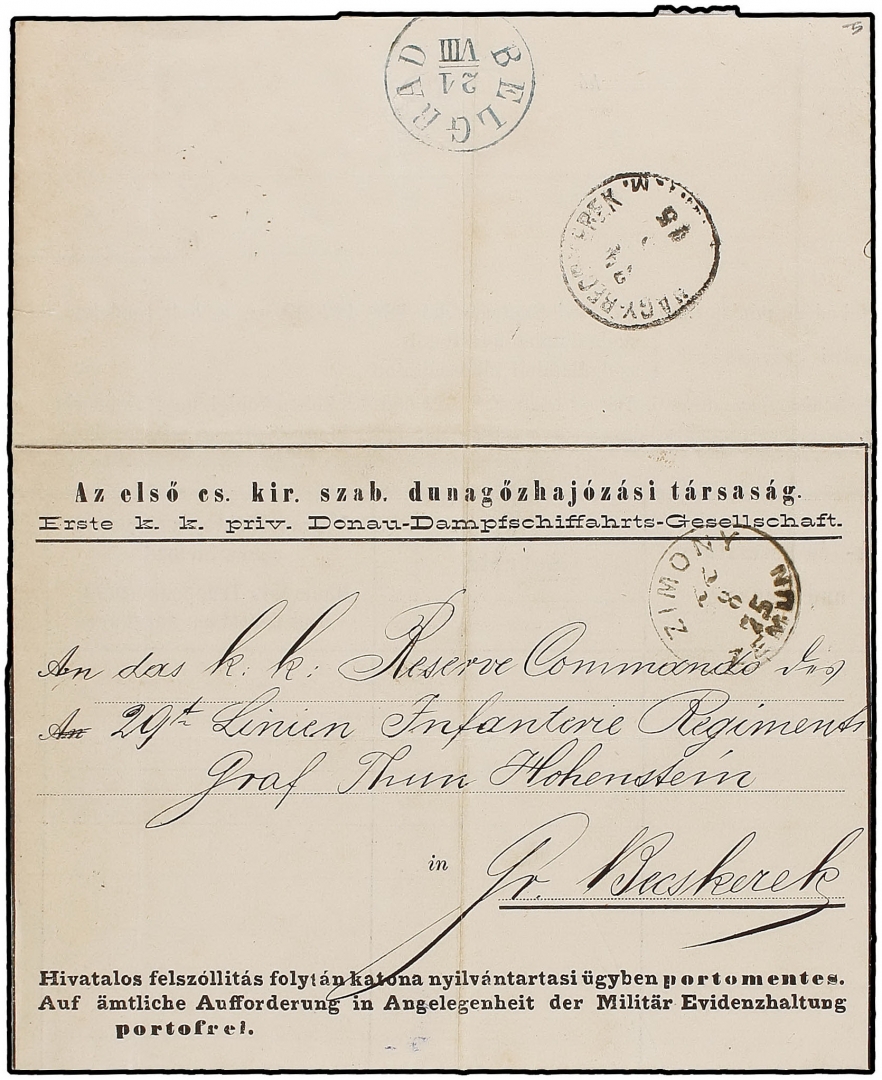 BELGRAD
21
VIII
24
Az első cs. kir. szab. dunagőzhajózási társaság.
Erste k. k. priv. Donau-Dampfschiffahrts-Gesellschaft.
ZIMONY
22
8
75
An das k. k. Reserve Commando des
An 29t Linien Infanterie Regiments
Graf Thun Hohenstein
in Gr. Becskerek
Hivatalos felszóllitás folytán katona nyilvántartasi ügyben portomentes.
Auf ämtliche Aufforderung in Angelegenheit der Militär Evidenzhaltung
portofrei.